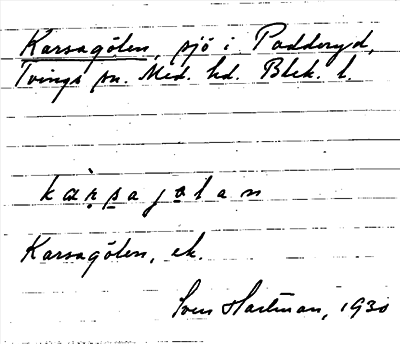 Karsagölen, sjö i Padderyd,
Tvings sn. Med. hd. Blek. l.
kàṛṣajølan
Karsagölen, ek.
Sven Hartman, 1930